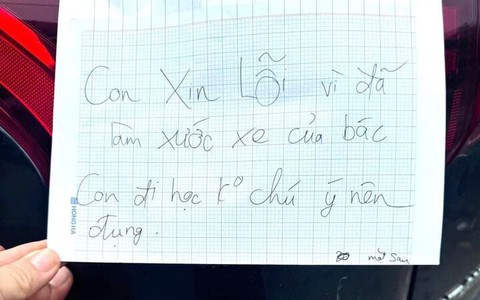 Con Xin Lỗi vì đã
làm xước xe của bác
Con đi học ko chú ý nên
đụng.
mặt sau
HONG HA